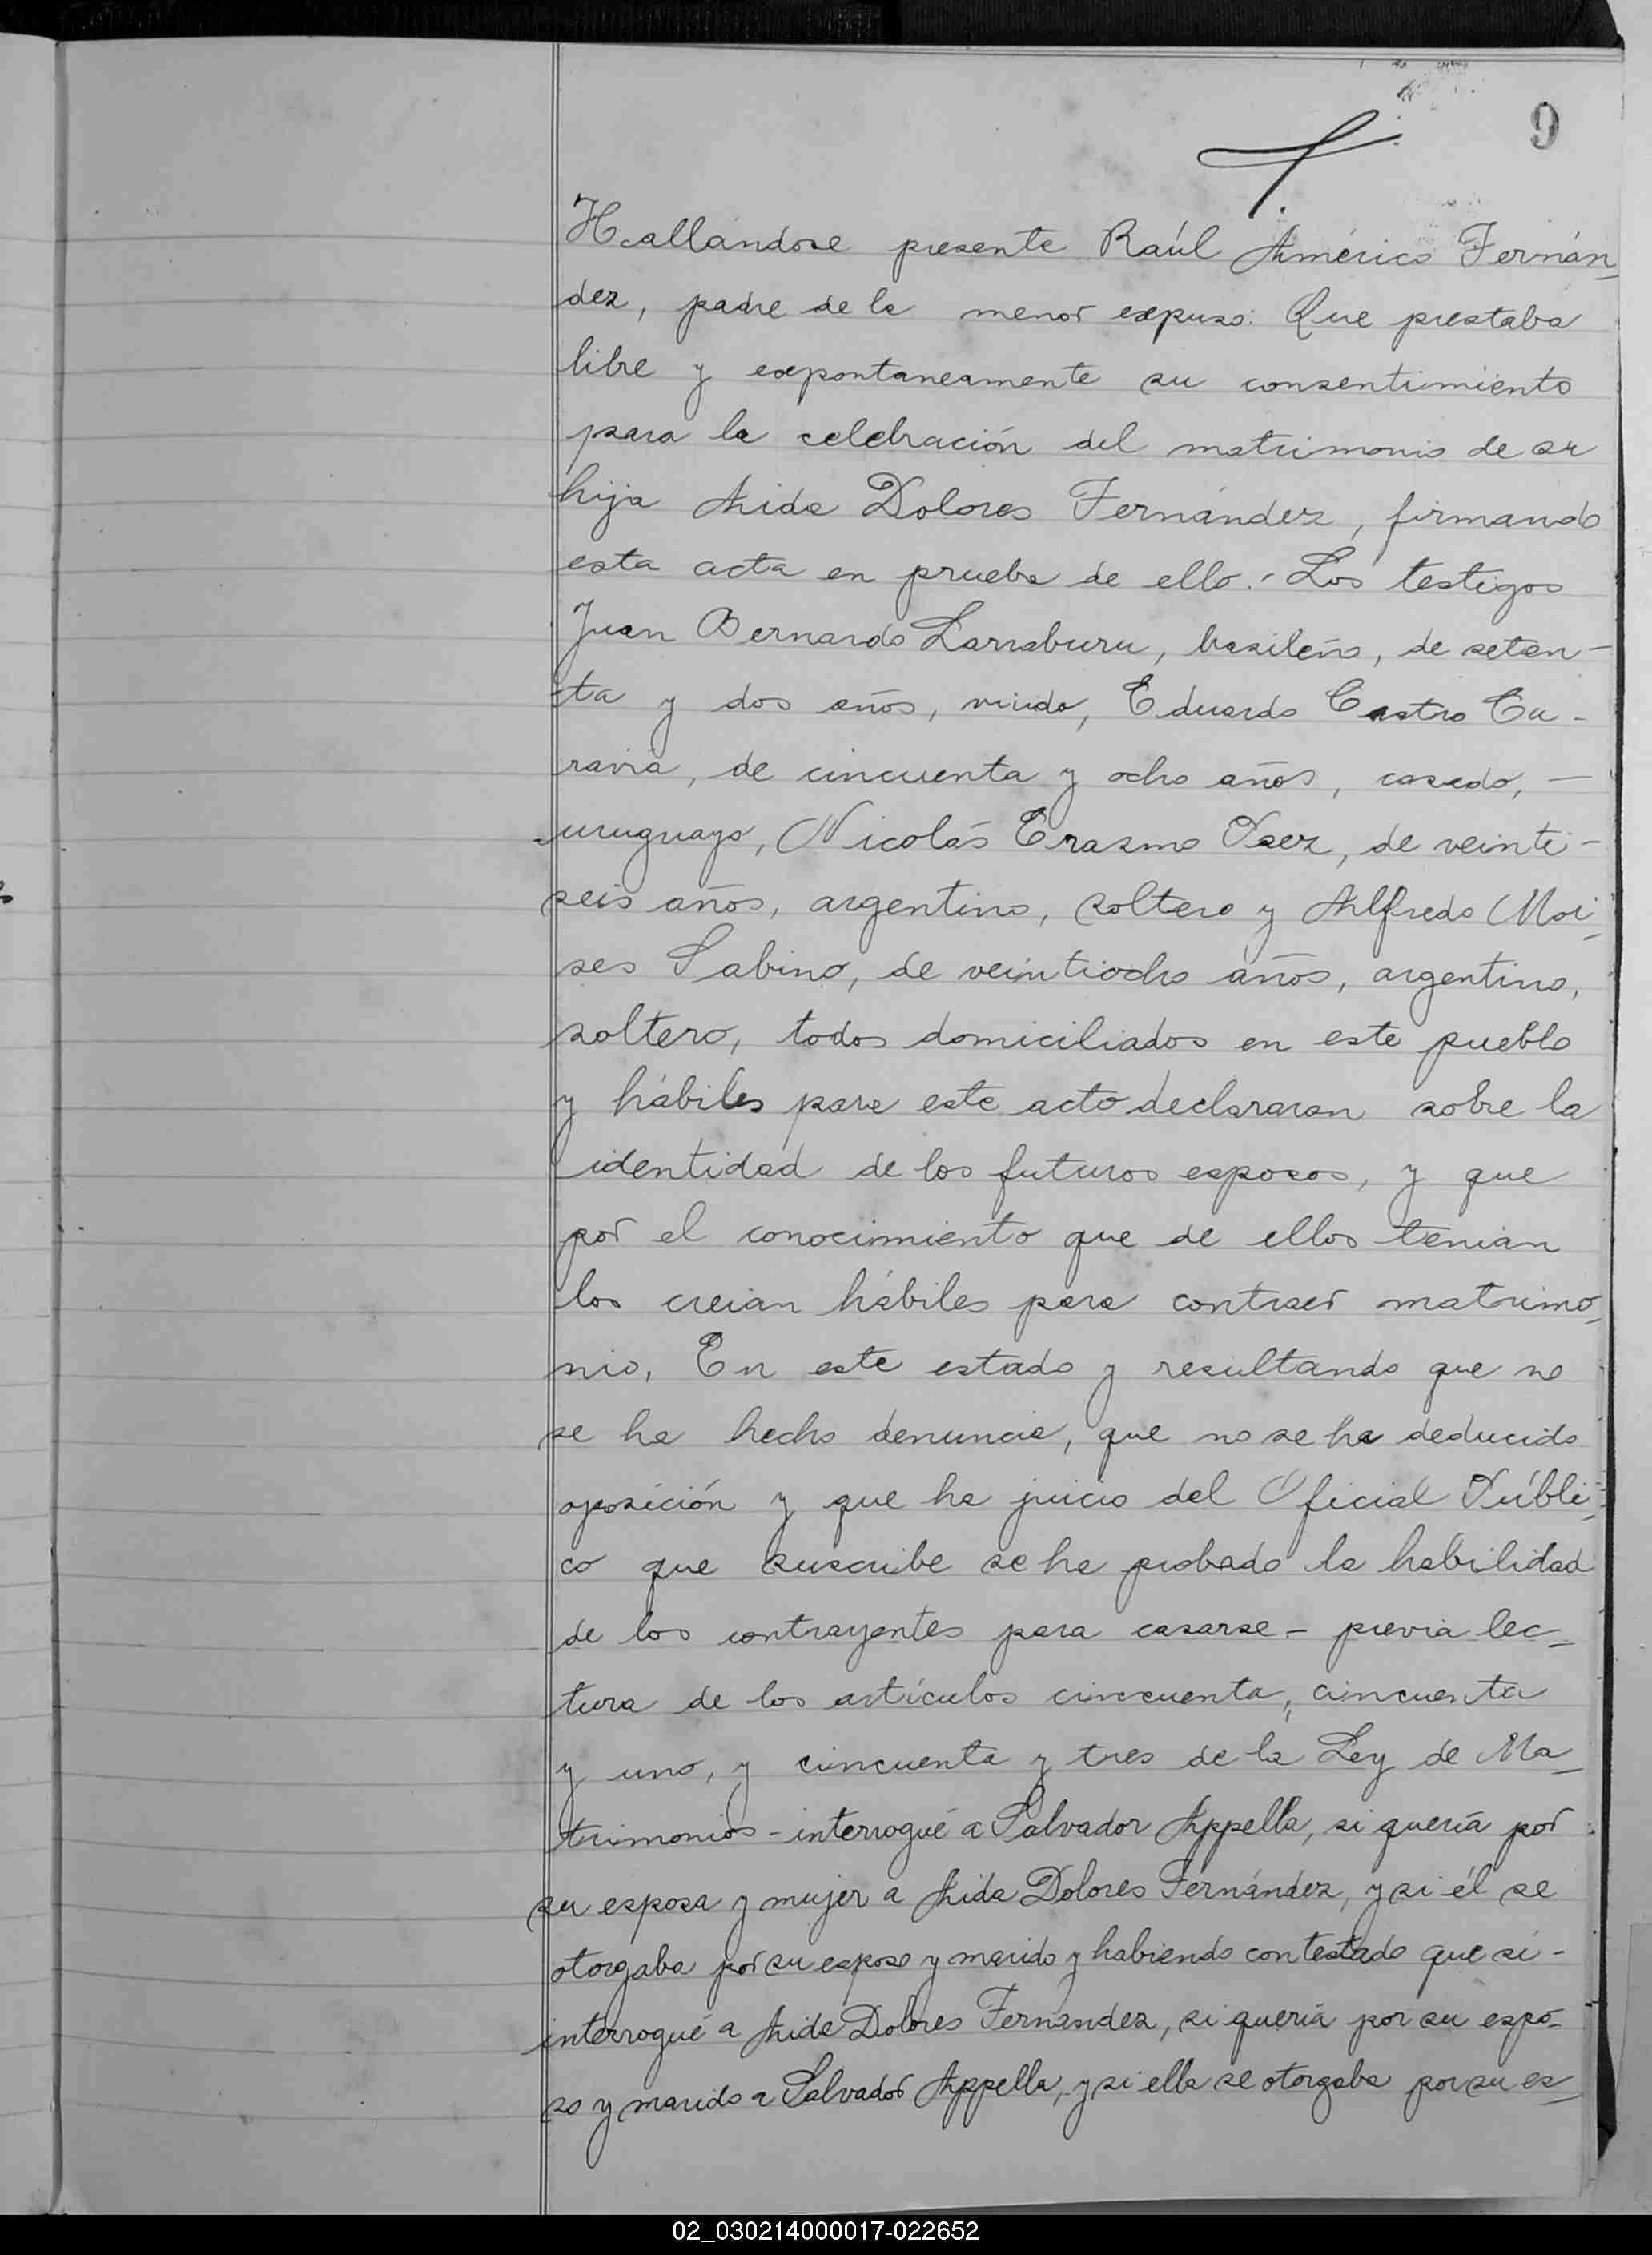 9
Hallándose presente Raúl Américo Fernán-
dez, padre de la menor expuso: Que prestaba
libre y expontaneamente su consentimiento
para la celebración del matrimonio de su
hija Aida Dolores Fernández, firmando
esta acta en prueba de ello. Los testigos
Juan Bernardo Larraburu, brasileño, de seten-
ta y dos años, viudo, Eduardo Castro Ca-
ravia, de cincuenta y ocho años, casado, -
uruguayo, Nicolás Erasmo Paez, de veinti-
seis años, argentino, soltero y Alfredo Moi-
ses Sabino, de veintiocho años, argentino,
soltero, todos domiciliados en este pueblo
y hábiles para este acto declararan sobre la
identidad de los futuros esposos, y que
por el conocimiento que de ellos tenian
los creian hábiles para contraer matrimo-
nio. En este estado y resultando que no
se ha hecho denuncia, que no se ha deducido
oposición y que ha juicio del Oficial Públi-
co que suscribe se ha probado la habilidad
de los contrayentes para casarse - previa lec-
tura de los artículos cincuenta, cincuenta
y uno, y cincuenta y tres de la Ley de Ma-
trimonios - interrogué a Salvador Appella, si quería por
su esposa y mujer a Aida Dolores Fernández, y si él se
otorgaba por su esposo y marido y habiendo contestado que si -
interrogué a Aida Dolores Fernández, si quería por su espo-
so y marido a Salvador Appella, y si ella se otorgaba por su es-
02_030214000017-022652